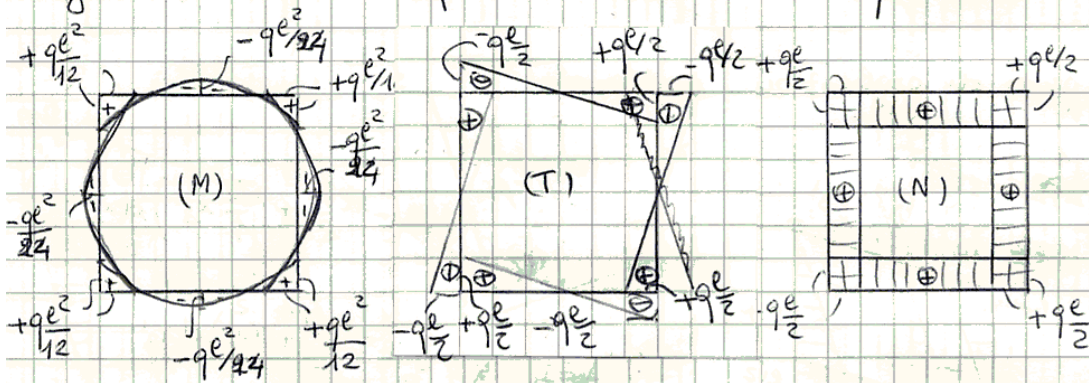 +qℓ²/12
-qℓ²/24
+qℓ²/1
-qℓ²/24
(M)
-qℓ²/24
+qℓ²/12
-qℓ²/24
+qℓ²/12
-qℓ/2
+qℓ/2
-qℓ/2
(T)
-qℓ/2
+qℓ/2
-qℓ/2
+qℓ/2
+qℓ/2
+qℓ/2
(N)
qℓ/2
+qℓ/2